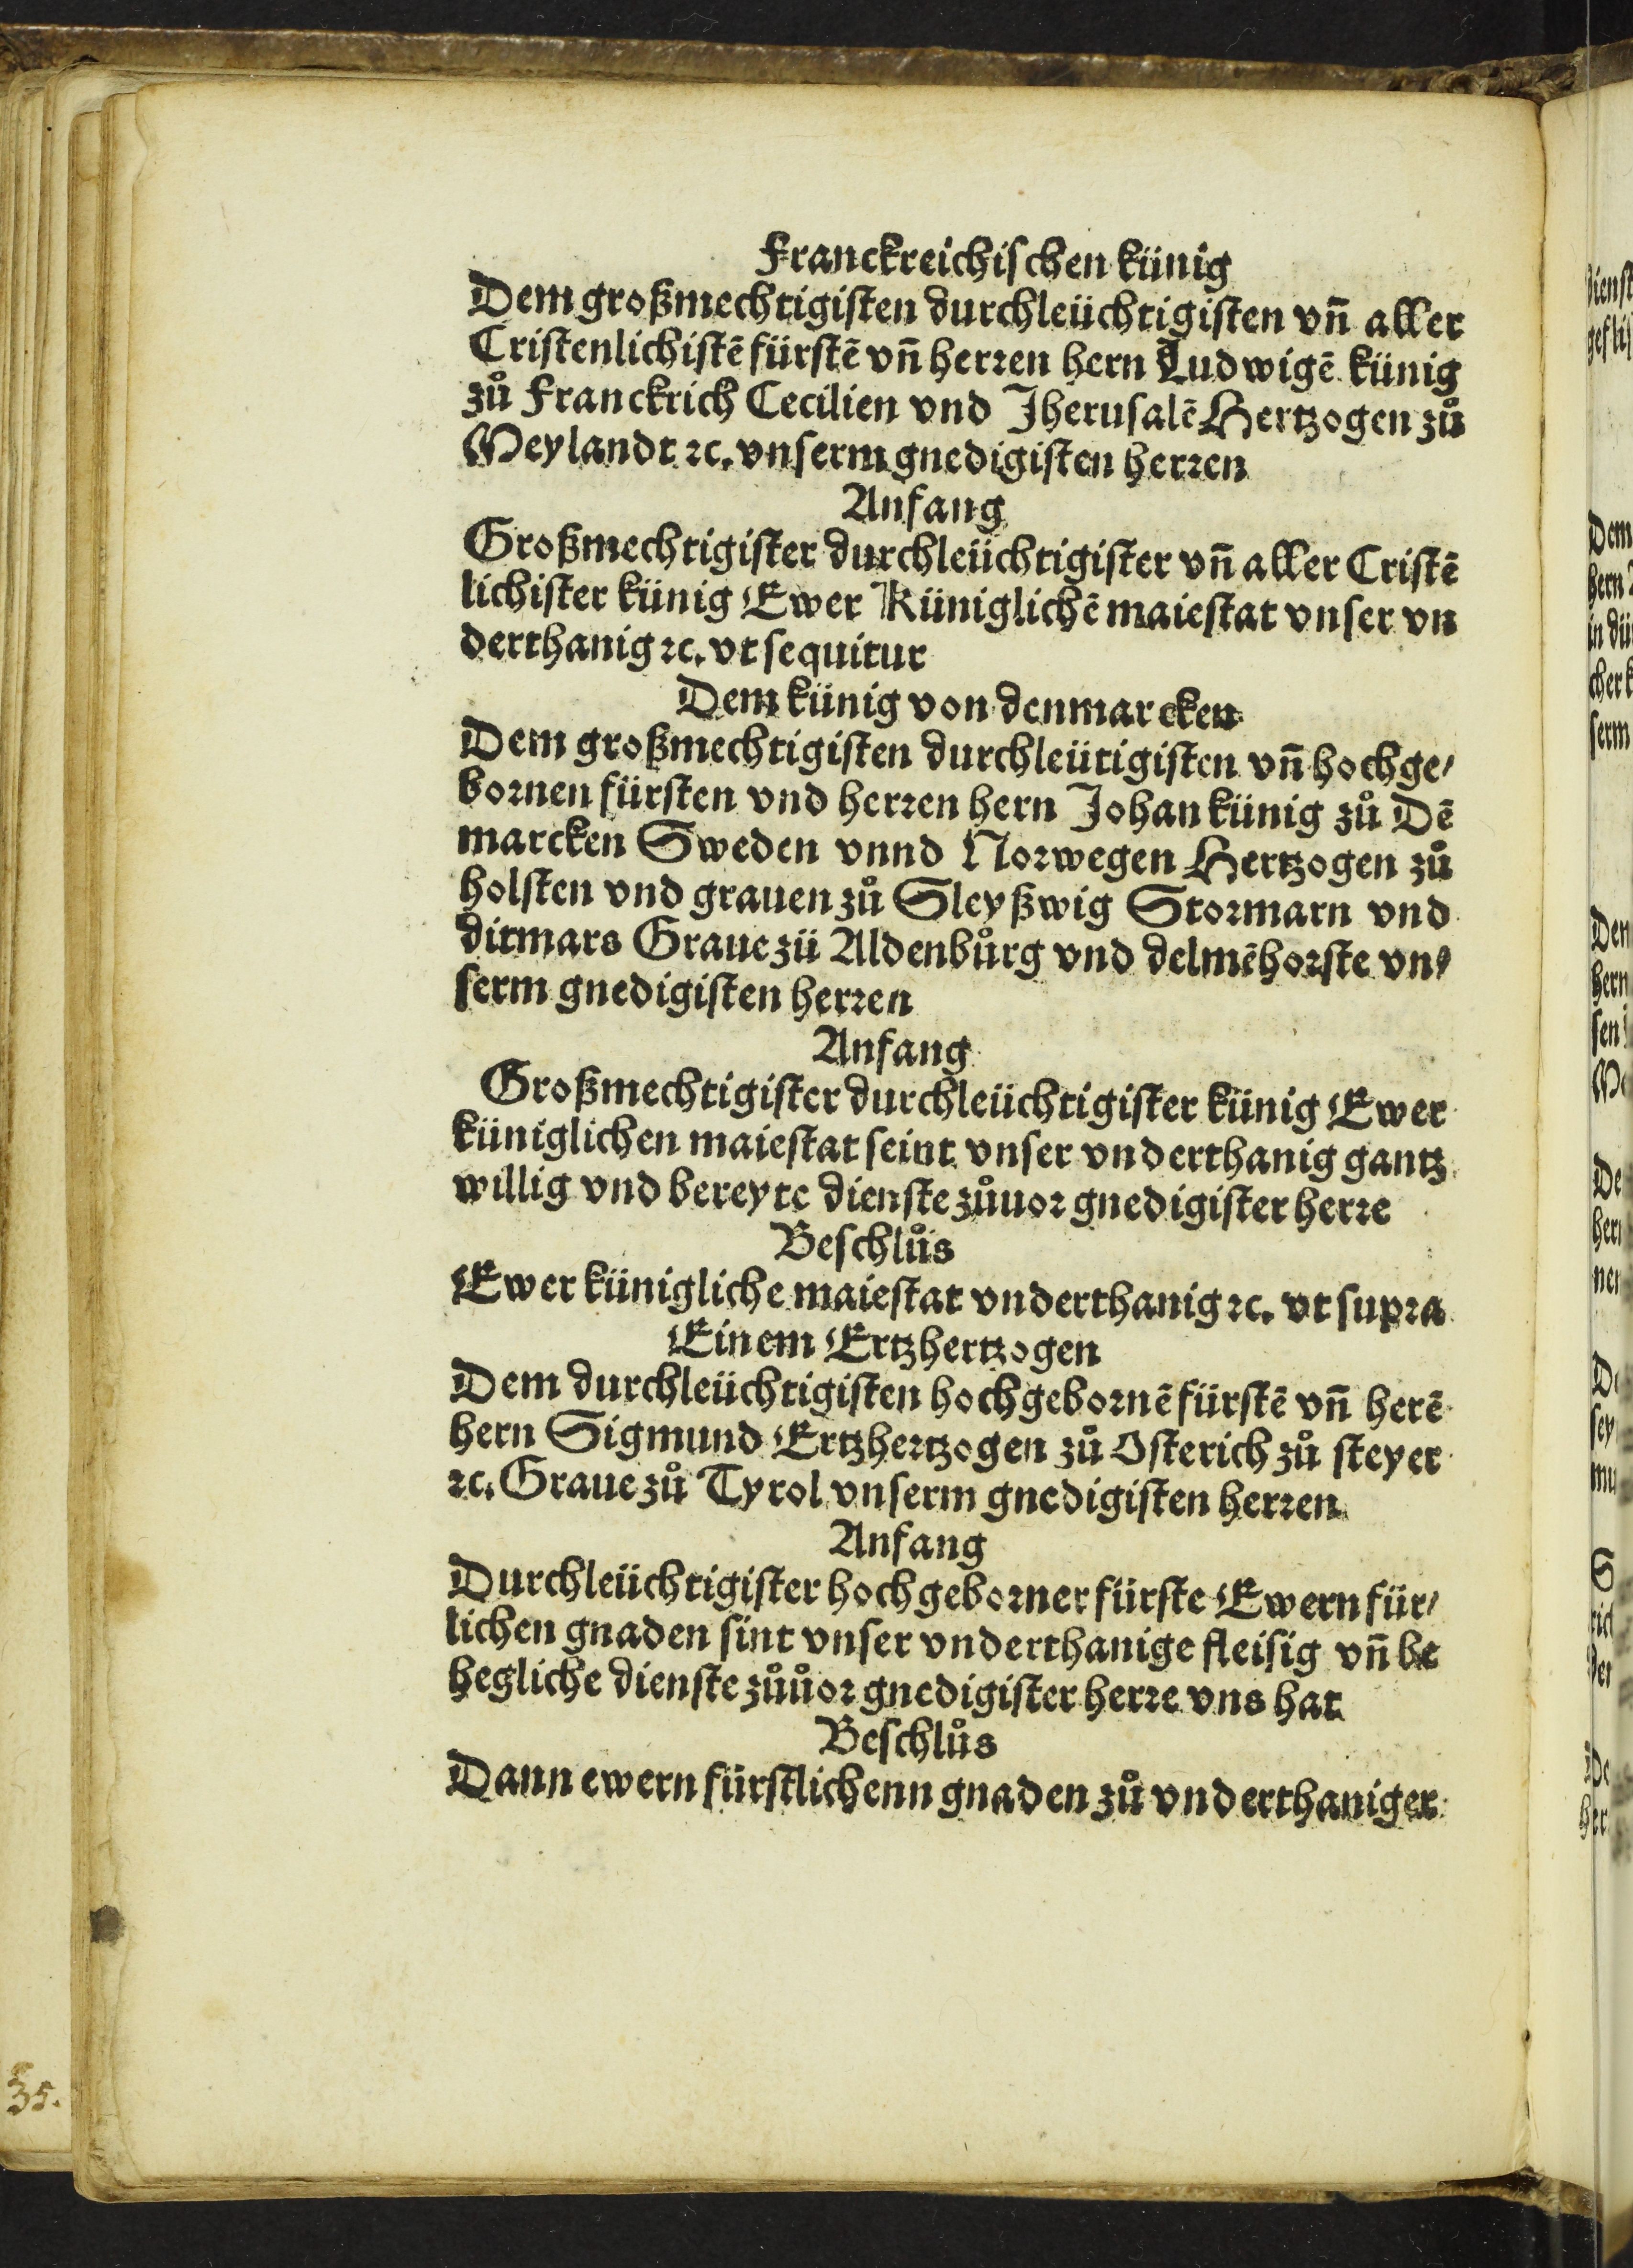 Franckreichischen künig
Dem großmechtigisten durchleüchtigisten vn̄ aller
Cristenlichistē fürstē vn̄ herren hern Ludwigē künig
zů Franckrich Cecilien vnd Jherusalē Hertzogen zů
Meylandt ꝛc. vnserm gnedigisten herren
Anfang
Großmechtigister durchleüchtigister vn̄ aller Cristē
lichister künig Ewer Küniglichē maiestat vnser vn
derthanig ꝛc. vt sequitur
Dem künig von denmarcken
Dem großmechtigisten durchleütigisten vn̄ hochge/
bornen fürsten vnd herren hern Johan künig zů Dē
marcken Sweden vnnd Norwegen Hertzogen zů
holsten vnd grauen zů Sleyßwig Stormarn vnd
ditmars Graue zü Aldenbůrg vnd delmēhorste vn/
serm gnedigisten herren
Anfang
Großmechtigister durchleüchtigister künig Ewer
küniglichen maiestat seint vnser vnderthanig gantz
willig vnd bereyte dienste zůuor gnedigister herre
Beschlůs
Ewer künigliche maiestat vnderthanig ꝛc. vt supra
Einem Ertzhertzogen
Dem durchleüchtigisten hochgebornē fürstē vn̄ herē
hern Sigmund Ertzhertzogen zů Osterich zů steyer
ꝛc. Graue zů Tyrol vnserm gnedigisten herren
Anfang
Durchleüchtigister hochgeborner fürste Ewern für/
lichen gnaden sint vnser vnderthanige fleisig vn̄ be
hegliche dienste zůůor gnedigister herre vns hat
Beschlůs
Dann ewern fürstlichenn gnaden zů vnderthaniger
35.